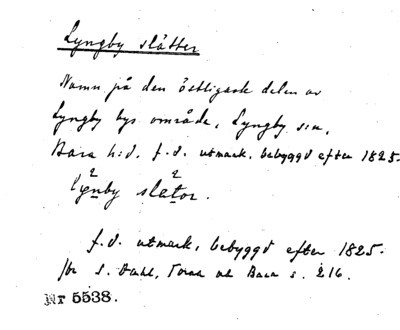 Lyngby slätter
Namn på den östligaste delen av
Lyngby bys område, Lyngby sn,
Bara h:d. f.d. utmark, bebyggd efter 1825.
lynby slätor.
f.d. utmark, bebyggd efter 1825.
jbr S. Dahl, Torna och Bara s. 216.
Nr 5538.